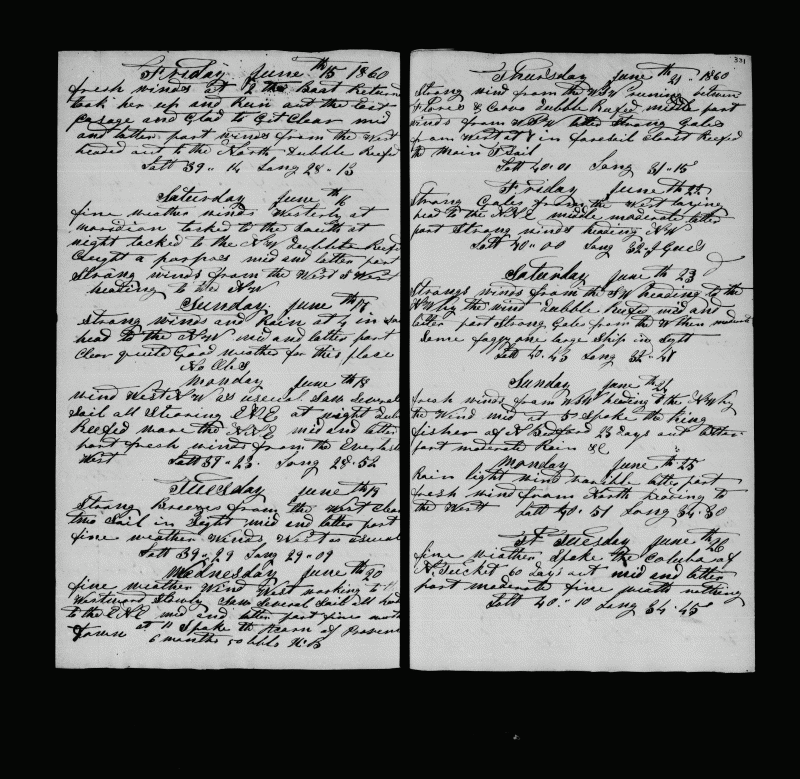 Friday June 15th 1860
fresh winds at the Boat Return
took her up and Run out the East
pasage and Glad to Get Clear mid
and latter part winds from the West
headed out to the North Dubble Reefed
Latt 39.. 14 Long 28 - 13
Saturday June th 16
fine weather winds Westerly at
maridian tacked to the South at
night tacked to the NW Dubble Reefed
Caught a porpos mid and latter part
Strong winds from the West S West
heading to the NW
Sunday June th 17
Strong winds and Rain at in
head to the NW mid and latter part
Clear quite Good weather for this place
No Obs
Monday June th 18
wind West N W as usucal Saw Several
Sail all Stearing ENE at night Dub
Reefed ware the NNE mid and latter
part fresh winds from the Everlasti
West Latt 39 - 23. Long 28 - 52
Tuesday June th 19
Strong Breezes from the West Clear
two Sail in Sight mid and latter part
fine weather Winds West as usual
Latt 39 .. 29 Long 29 = 09
Wednesday June th 20
fine weather Wind West working to
Westward Slowly Saw Several Sail all bound
to the ENE mid and latter part fine
at 11 Spoke the of Provinc
Town 6 months 50 bbls
331
Thursday June th 21.. 1860
Strong wind from the WSW runing between
Flores & Corvo Dubble Reefed middle part
winds from WSW latter Strong Gales
from West at in foresail Close Reefed
the Main T Sail
Latt 40 .. 01 Long 31 - 15
Friday June th 22
Strong Gales from the West laying
head to the NNE middle moderate latter
part Strong winds heading NW
Latt 40 .. 00 Long 32.
Saturday June th 23
Strongs winds from the SW heading to the
NW by the wind Dubble Reefed mid and
latter part Strong Gales from the W then
Some foggy one large Ship in Sight
Latt 40 .. 43 Long 32 - 48
Sunday June th 24
fresh winds from WSW heading to the NW by
the Wind mid at 5 Spoke the King
fisher of N Bedford 23 days out latter
part moderate Rain &c
Monday June th 25
Rain light wind varable latter part
fresh wind from North to
the West Latt 40 .. 51 Long 34 - 30
Tuesday June th 26
fine weather Spoke the of
N.Tucket 60 days out mid and latter
part moderate fine weath nothing
Latt 40 .. 10 Long 34 - 45